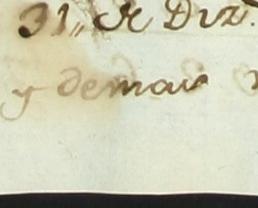 31,, de Diz.
y demas